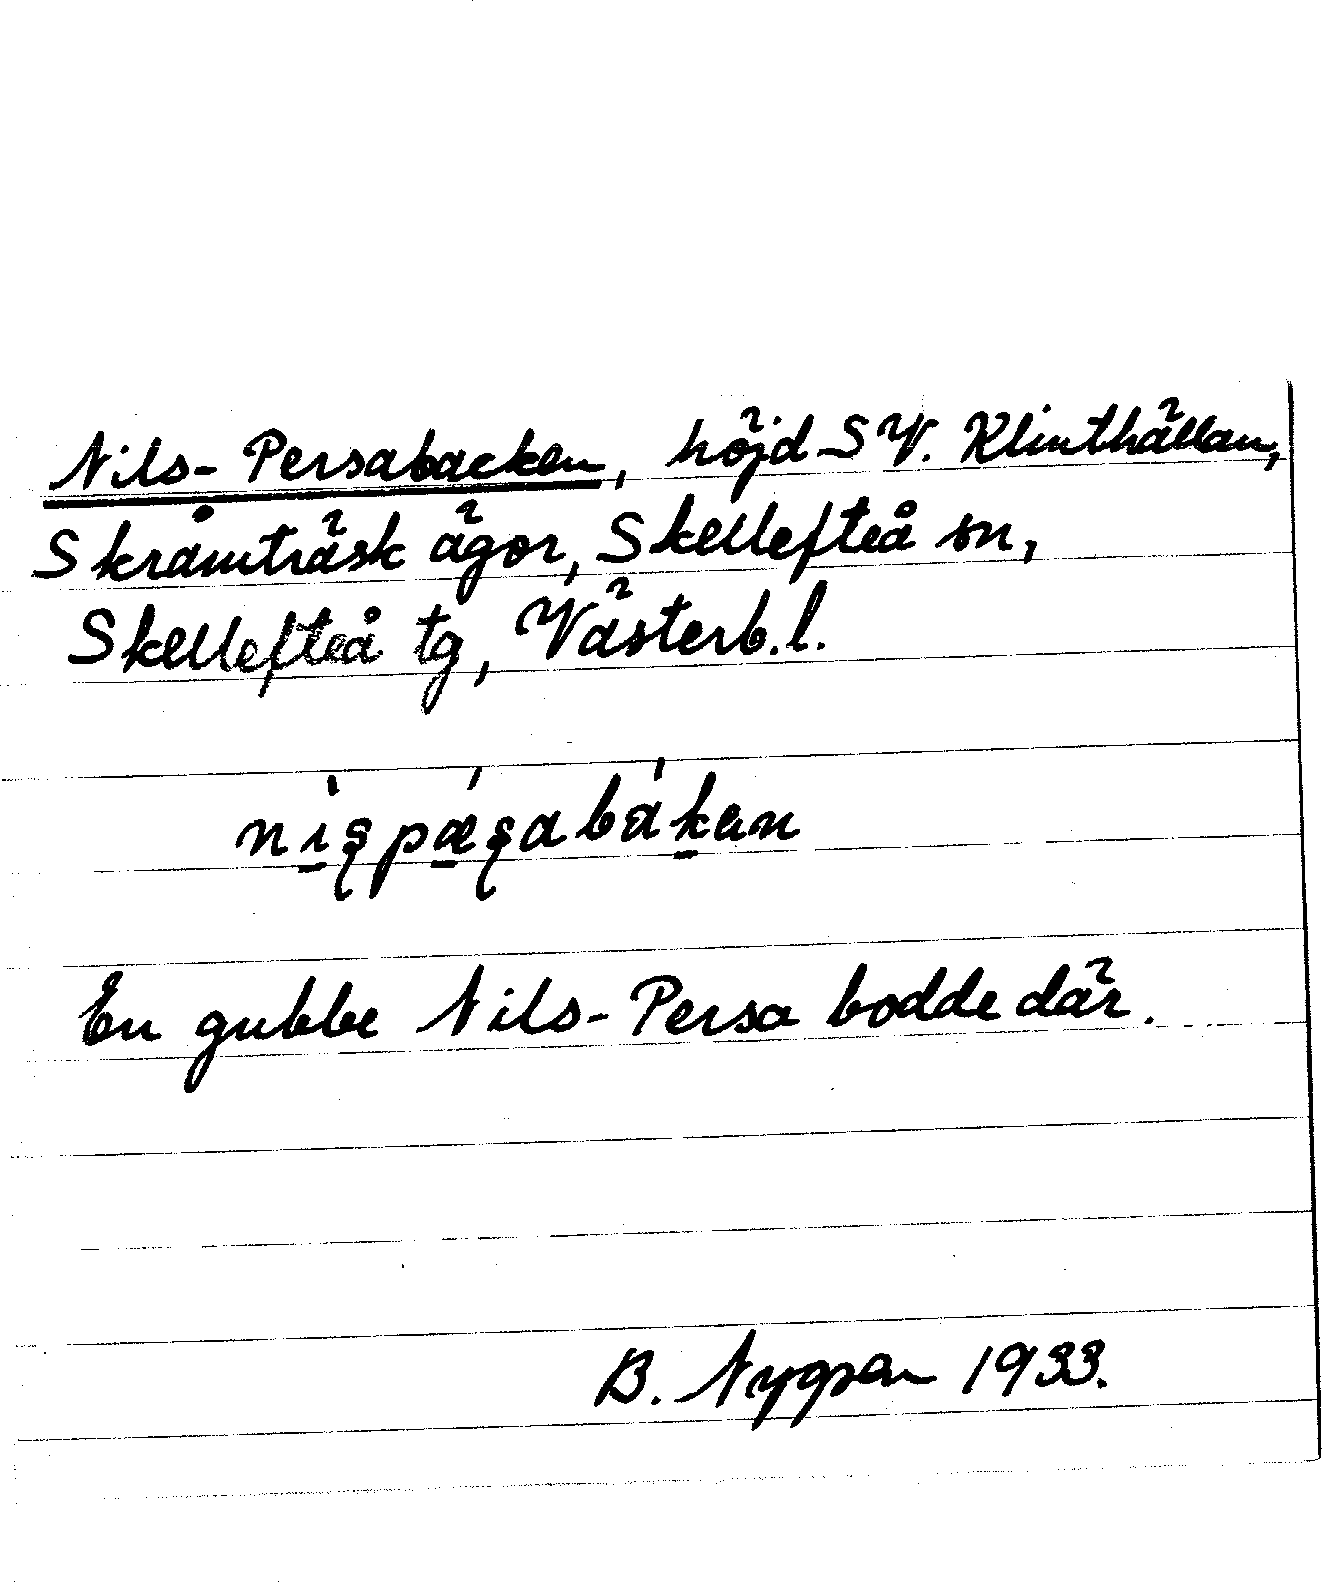 Nils-Persabacken, höjd SV. Klinthällan,
Skråmträsk ägor, Skellefteå sn,
Skellefteå tg, Västerb.l.
En gubbe Nils-Persa bodde där.
B. Nygren 1933.